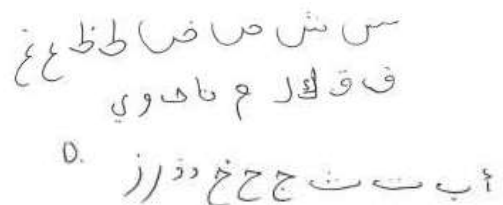 س ش ص ض ط ظ ع غ
ف ق ك ل م ن ه و ي
D. أ ب ت ث ج ح خ د ذ ر ز